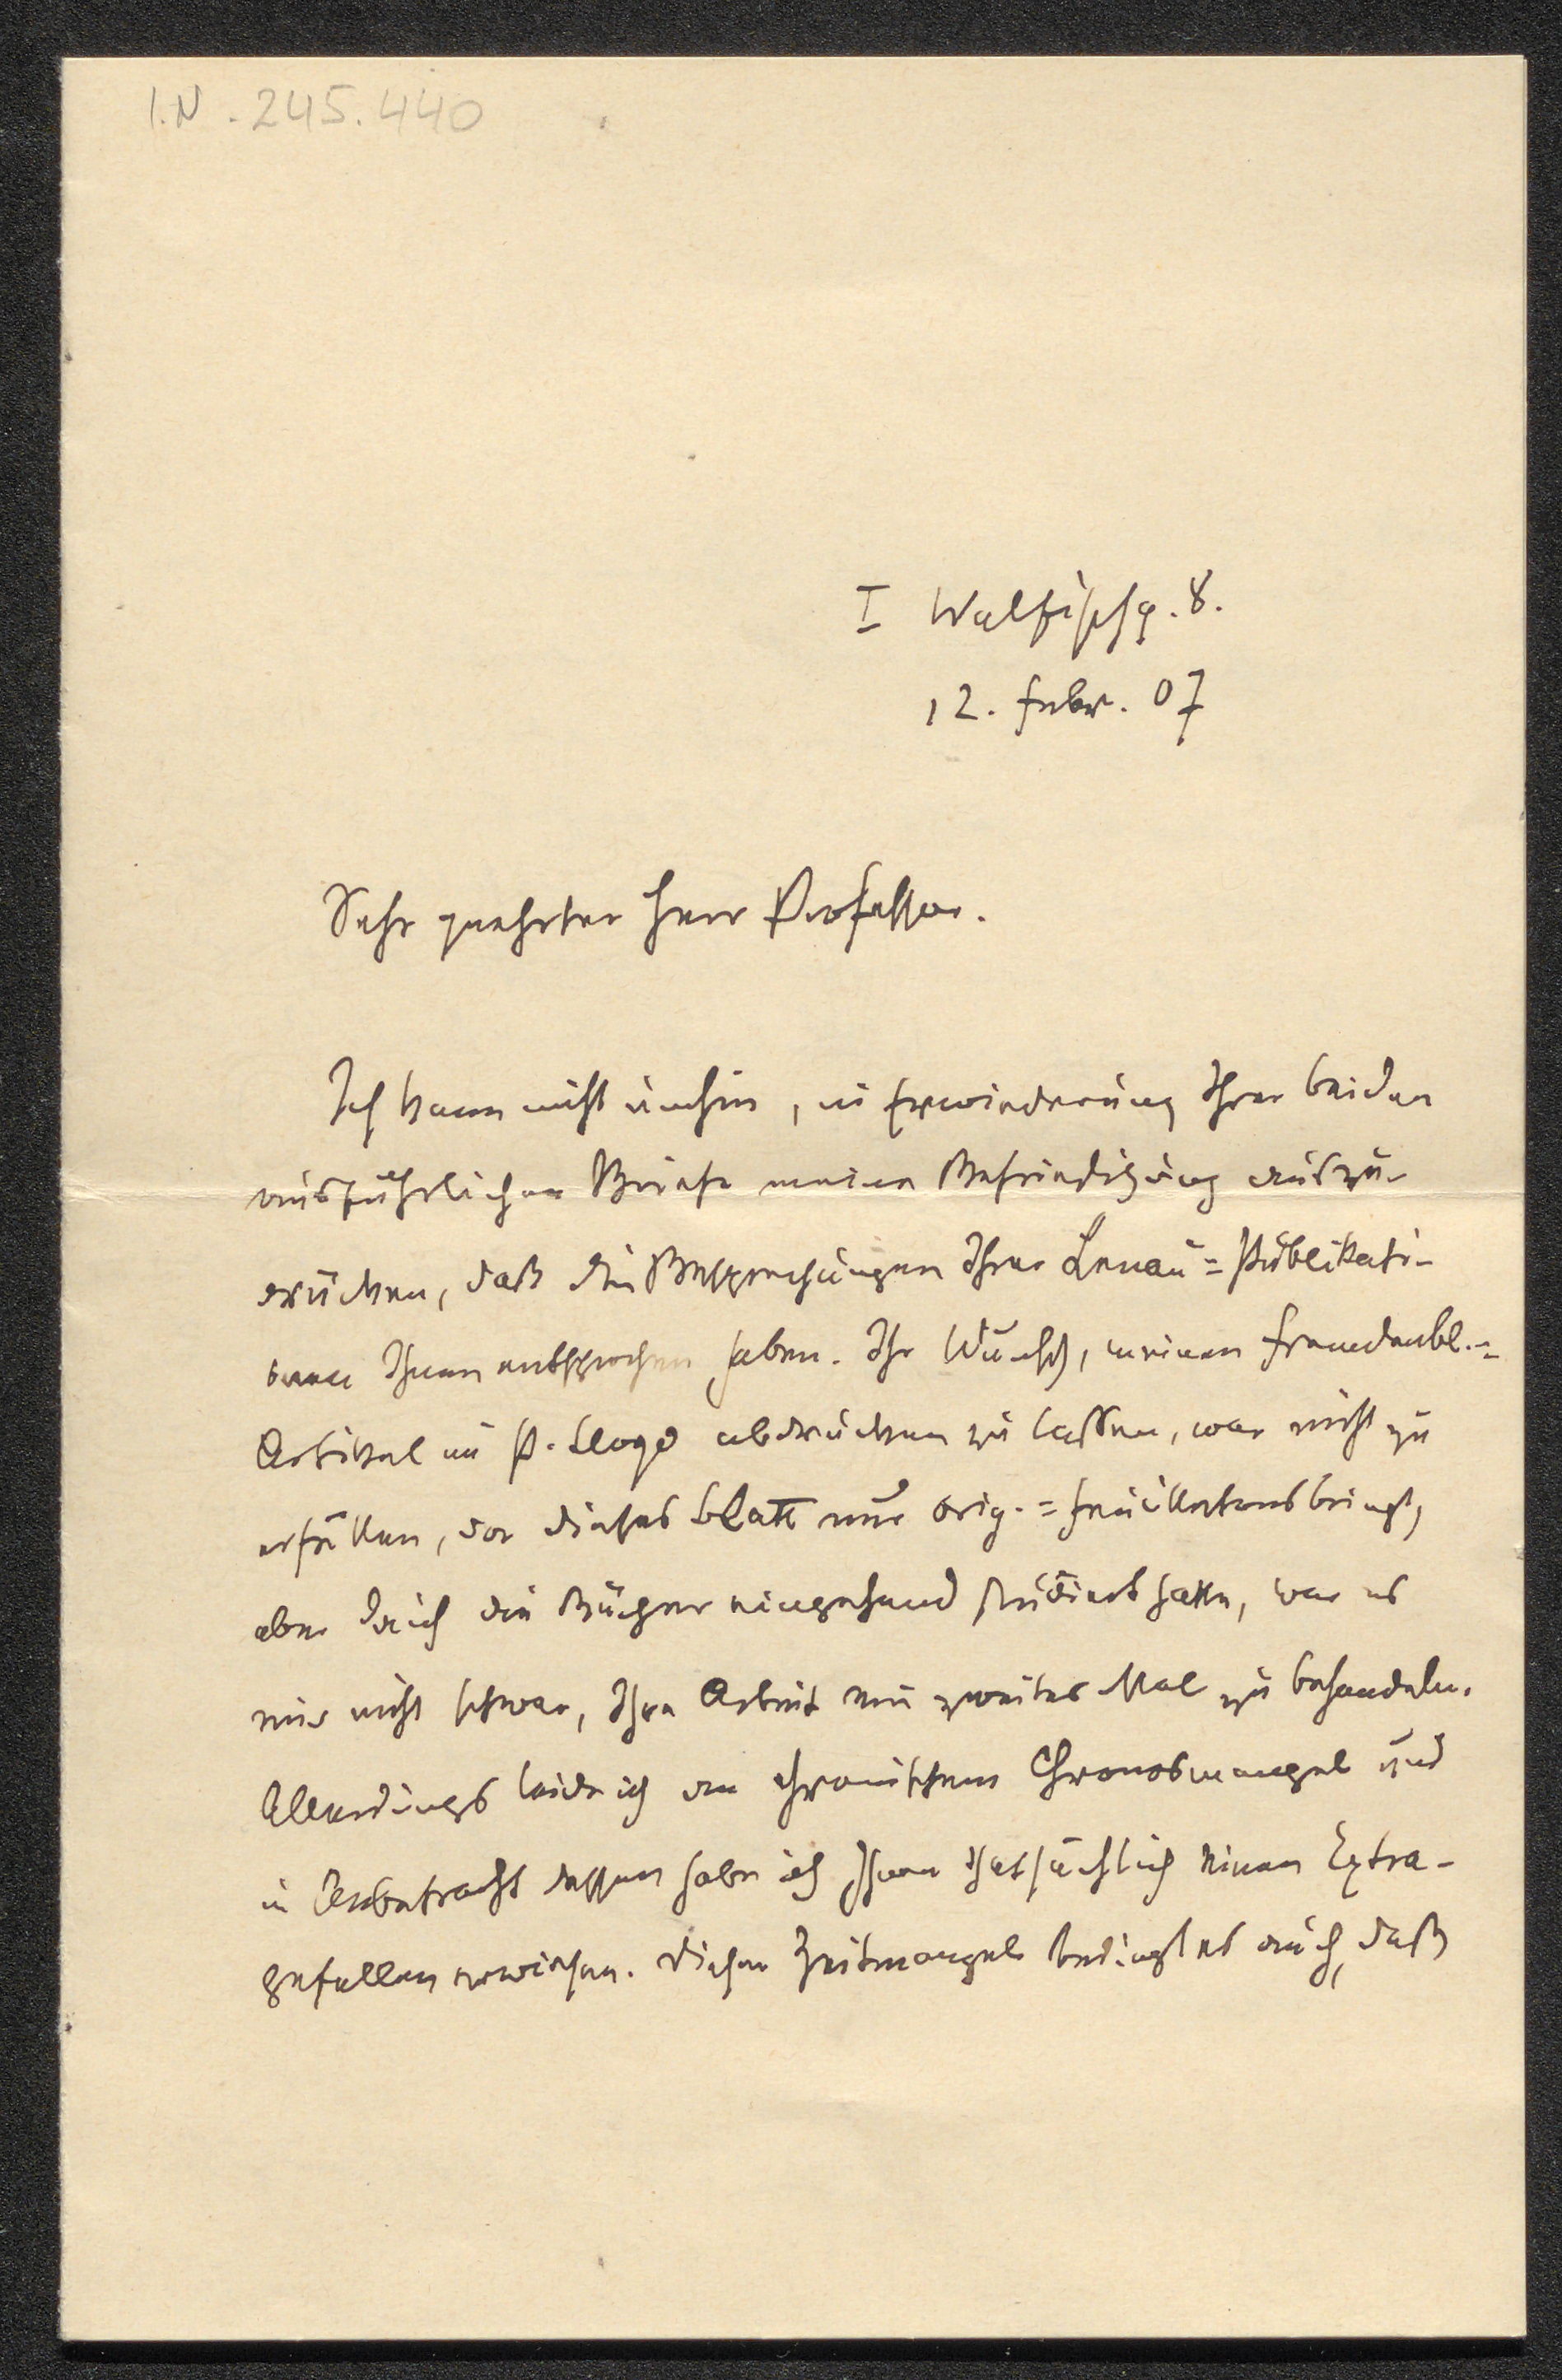 I.N. 245.440
I Walfischg. 8.
12. Febr. 07
Sehr geehrter Herr Professor.
Ich kann nicht umhin, in Erwiederung Ihrer beiden
ausführlichen Briefe meine Befriedigung auszu-
drücken, daß die Besprechungen Ihrer Lenau-Publikati-
onen Ihnen entsprochen haben. Ihr Wunsch, meinen Fremdenbl.-
Artikel im P. Lloyd abdrucken zu lassen, war nicht zu
erfüllen, da dieses Blatt nur Orig.-Feuilletons bringt,
aber da ich die Bücher eingehend studiert hatte, war es
mir nicht schwer, Ihre Arbeit ein zweites Mal zu behandeln.
Allerdings leide ich an chronischem Chronosmangel und
in Anbetracht dessen habe ich Ihnen thatsächlich einen Extra-
gefallen erwiesen. Dieser Zeitmangel bedingt es auch, daß